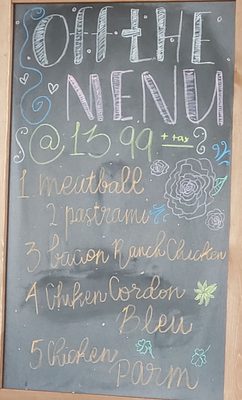 Off the
MENU
@ 13.99 + tax
1 meatball
2 pastrami
3 bacon Ranch Chicken
4 Chiken Cordon
Bleu
5 Chicken
parm